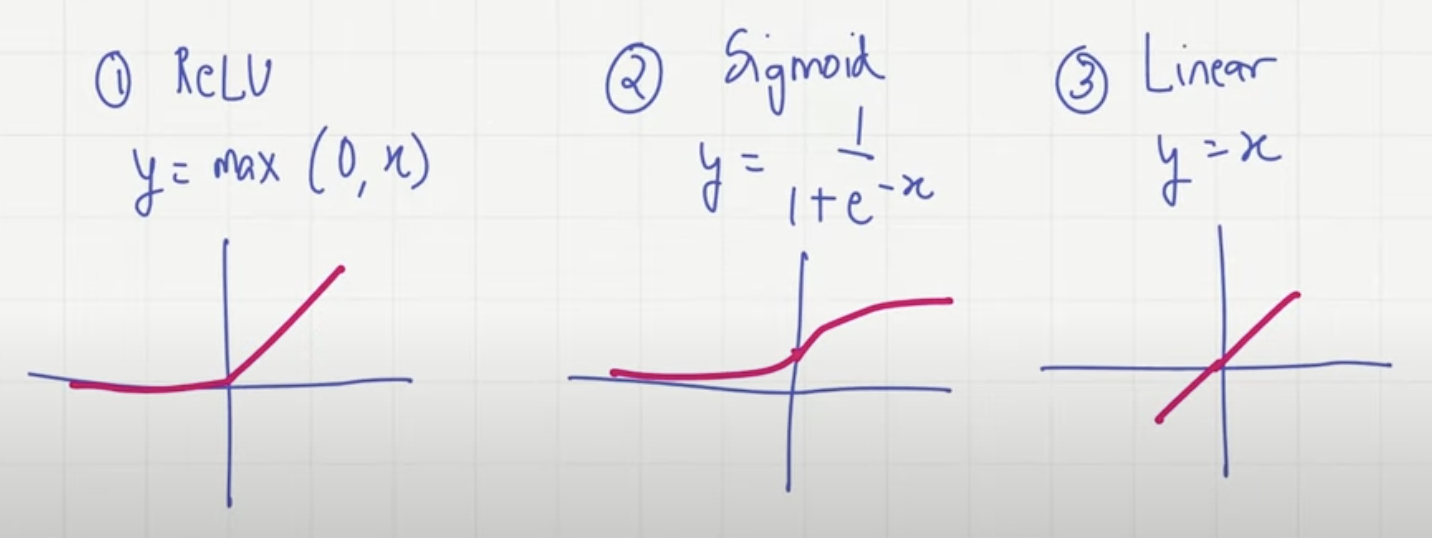 ① ReLU
y = max (0, x)
② Sigmoid
y = 1 / 1+e^-x
③ Linear
y = x